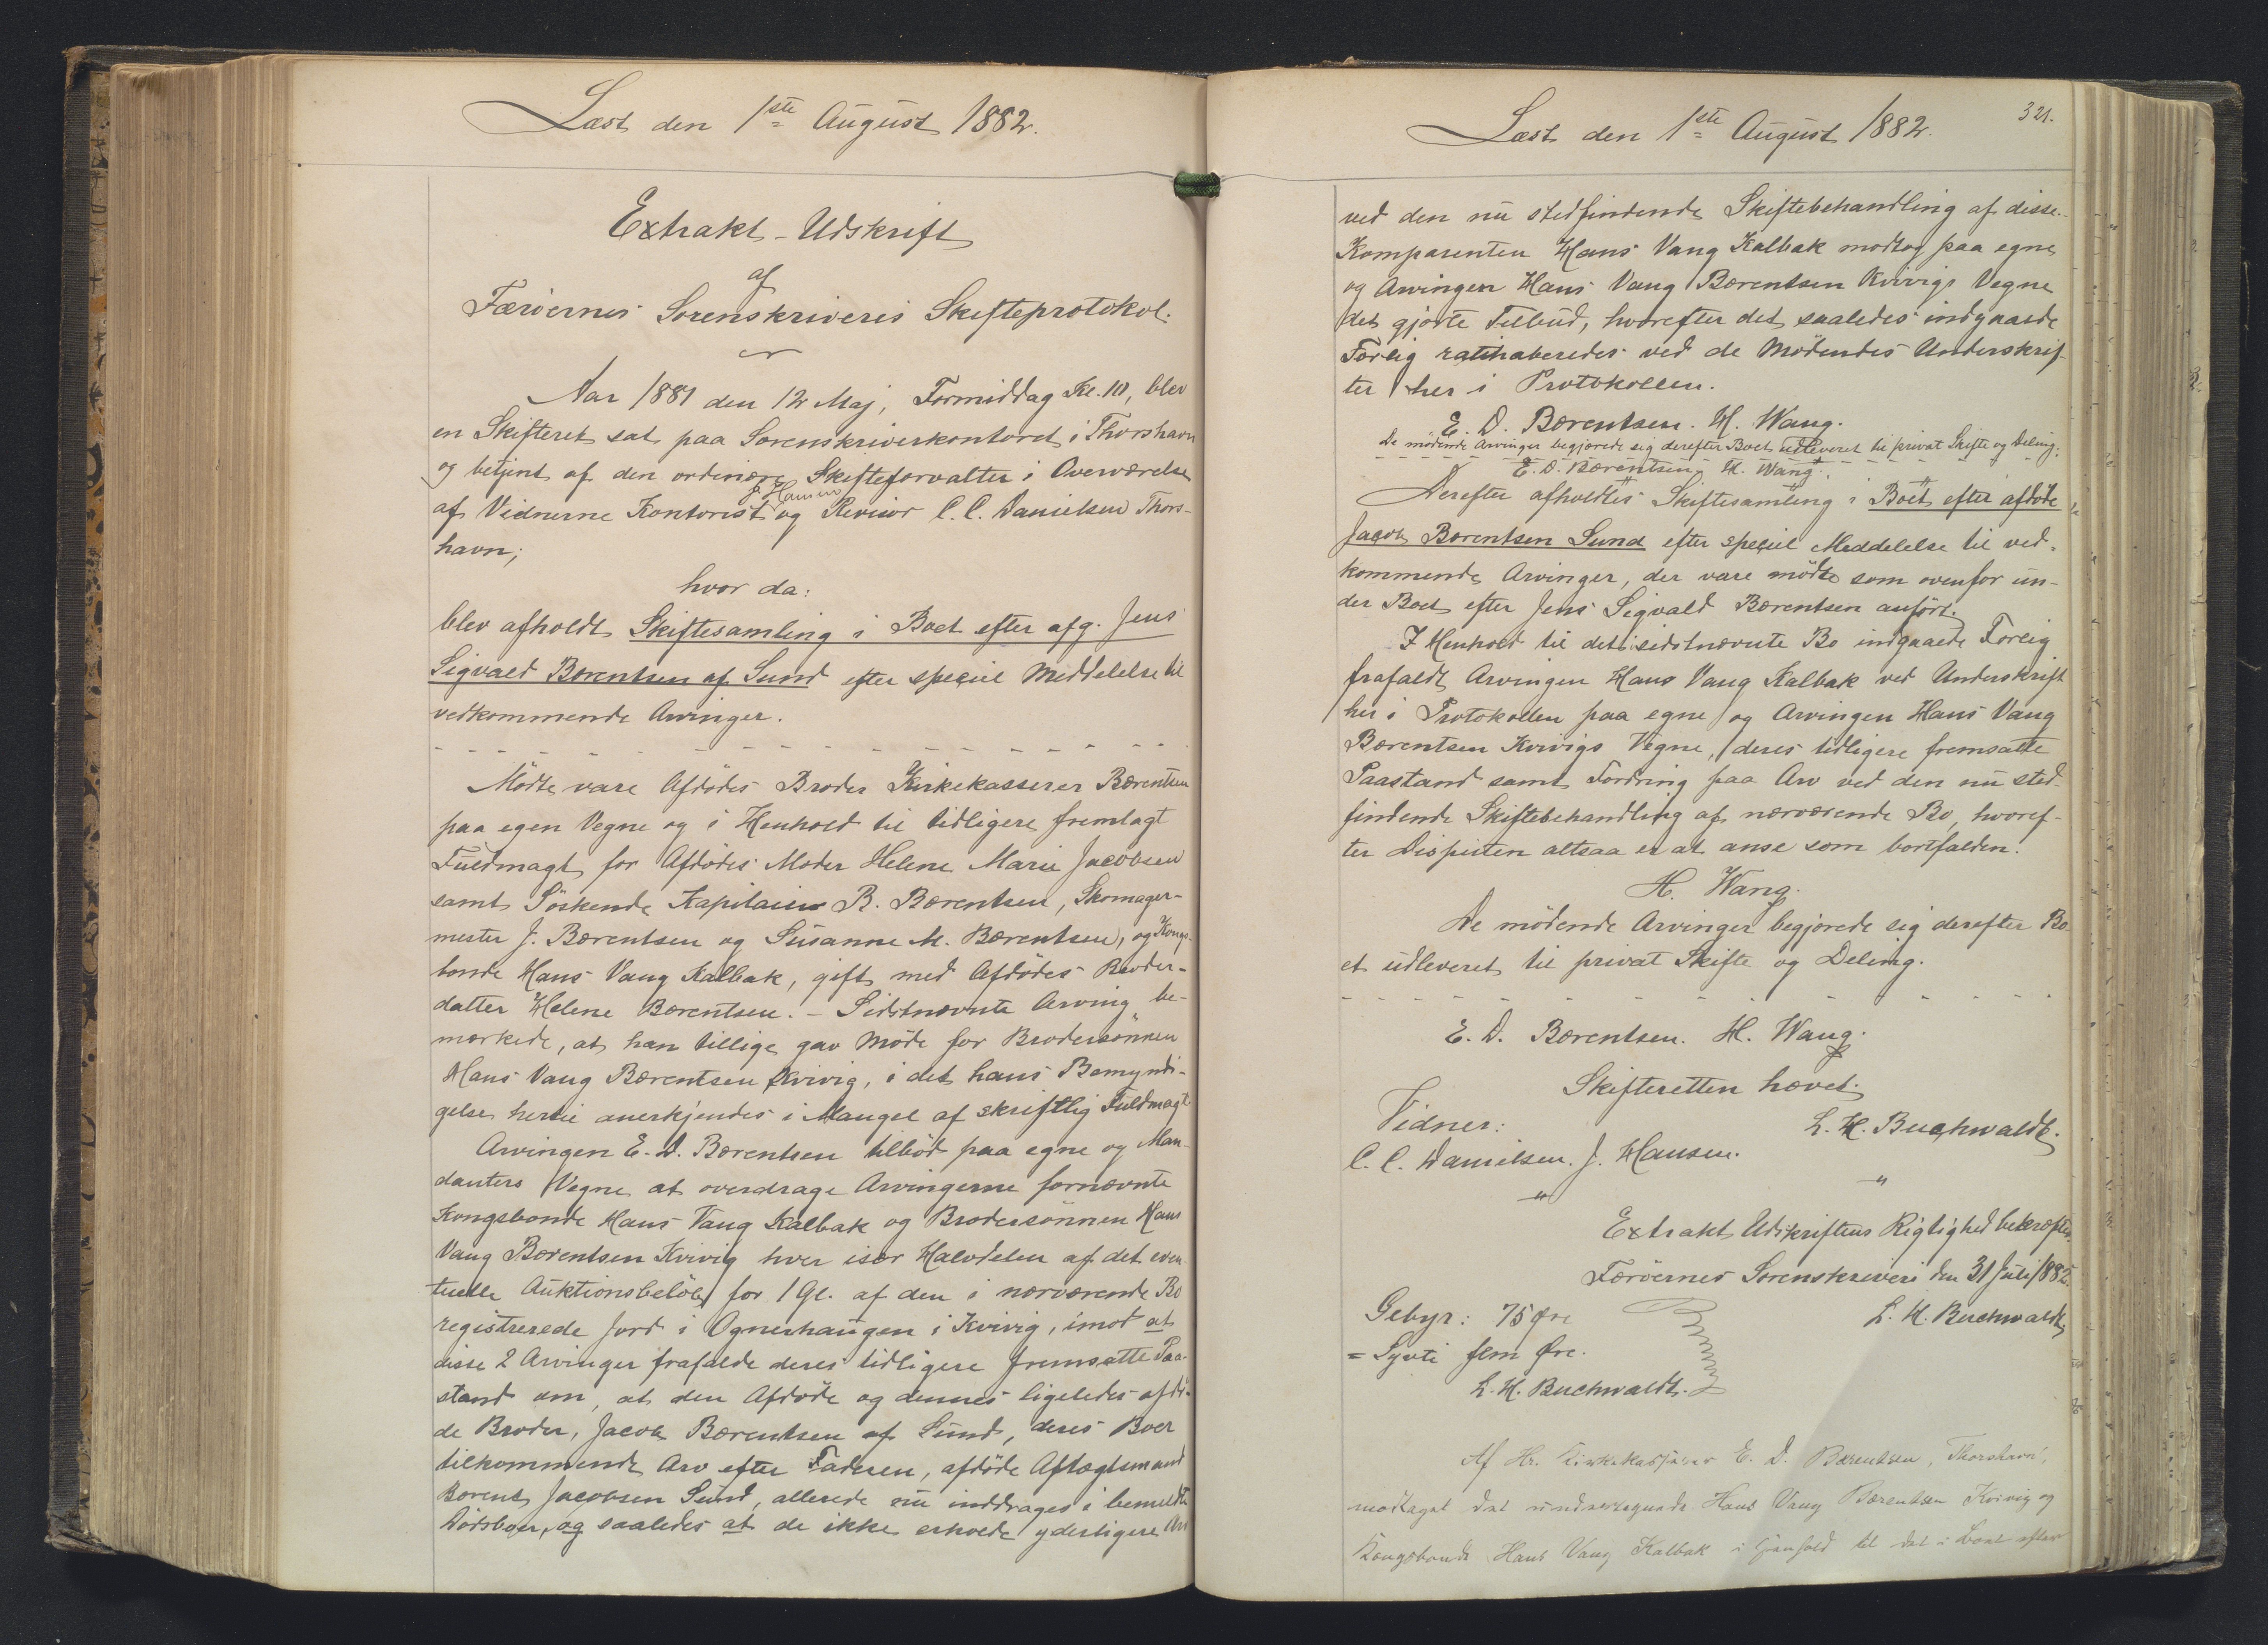 Læst den 1ste August 1882.
Extrakt-Udskrift
af
Færöernes Sorenskriveris Skifteprotokol.
Aar 1881 den 12 Maj, Formiddag Kl. 10, blev
en Skifteret sat paa Sorenskriverkontoret i Thorshavn
og betjent af den ordinære Skifteforvalter i Overværelse
af Vidnerne Kontorist J. Hansen og Revisor C. C. Danielsen Thors-
havn;
hvor da:
blev afholdt Skiftesamling i Boet efter afg. Jens
Sigvald Bærentsen af Sund efter speciel Meddelelse til
vedkommende Arvinger.
Mödte vare Afdödes Broder Kirkekasserer Bærentsen
paa egen Vegne og i Henhold til tidligere fremlagt
Fuldmagt for Afdödes Moder Helene Marie Jacobsen
samt Söskende Kapitain R. Bærentsen, Skomager-
mester J. Bærentsen og Susanne M. Bærentsen, og Kongs-
bonde Hans Vang Kalbak, gift med Afdödes Broder-
datter Helene Bærentsen. - Sidstnævnte Arving be-
mærkede, at han tillige gav Möde for Brodersönnen
Hans Vang Bærentsen Kvivig, i det hans Bemyndi-
gelse hertil anerkjendes i Mangel af skriftlig Fuldmagt.
Arvingen E. D. Bærentsen tilböd paa egne og Man-
danters Vegne at overdrage Arvingerne fornævnte
Kongsbonde Hans Vang Kalbak og Brodersönnen Hans
Vang Bærentsen Kvivig hver især Halvdelen af det even-
tuelle Auktionsbelöb for 1 Gl. af den i nærværende Bo
registrerede Jord i Ognerhaugen i Kvivig, imod at
disse 2 Arvinger frafalde deres tidligere fremsatte Paa-
stand om, at den Afdöde og dennes ligeledes afdö-
de Broder, Jacob Bærentsen af Sund, deres Boer
tilkommende Arv efter Faderen, afdöde Aftægtsmand
Bærent Jacobsen Sund, allerede nu inddrages i bemeldte
Dödsboer, og saaledes at de ikke erholde yderligere Arv
321.
Læst den 1ste August 1882.
ved den nu stedfindende Skiftebehandling af disse.
Komparenten Hans Vang Kalbak modtog paa egne
og Arvingen Hans Vang Bærentsen Kvivigs Vegne
det gjorte Tilbud, hvorefter det saaledes indgaaede
Forlig ratihaberedes ved de Mödendes Underskrif-
ter her i Protokollen.
E. D. Bærentsen. H. Wang.
De mödende Arvinger begjærede sig derefter Boet udleveret til privat Skifte og Deling.
E. D. Bærentsen. H. Wang.
Derefter afholdtes Skiftesamling i Boet efter afdöde
Jacob Bærentsen Sund efter speciel Meddelelse til ved-
kommende Arvinger, der vare mödte som ovenfor un-
der Boet efter Jens Sigvald Bærentsen anfört.
I Henhold til det i sidstnævnte Bo indgaaede Forlig
frafaldt Arvingen Hans Vang Kalbak ved Underskrift
her i Protokollen paa egne og Arvingen Hans Vang
Bærentsen Kvivigs Vegne, deres tidligere fremsatte
Paastand samt Fordring paa Arv ved den nu sted-
findende Skiftebehandling af nærværende Bo, hvoref-
ter Disputen altsaa er at anse som bortfalden.
H. Wang.
De mödende Arvinger begjærede sig derefter Bo-
et udleveret til privat Skifte og Deling.
E. D. Bærentsen. H. Wang.
Skifteretten hævet.
L. H. Buchwaldt.
Vidner:
C. C. Danielsen. J. Hansen.
Extrakt Udskriftens Rigtighed bekræftes.
Færöernes Sorenskriveri den 31 Juli 1882.
L. H. Buchwaldt.
Gebyr: 75 Öre
= Syvti fem Öre.
L. H. Buchwaldt.
Af Hr. Kirkekasserer E. D. Bærentsen, Thorshavn,
modtaget det undertegnede Hans Vang Bærentsen Kvivig og
Kongsbonde Hans Vang Kalbak i Henhold til det i Boet efter